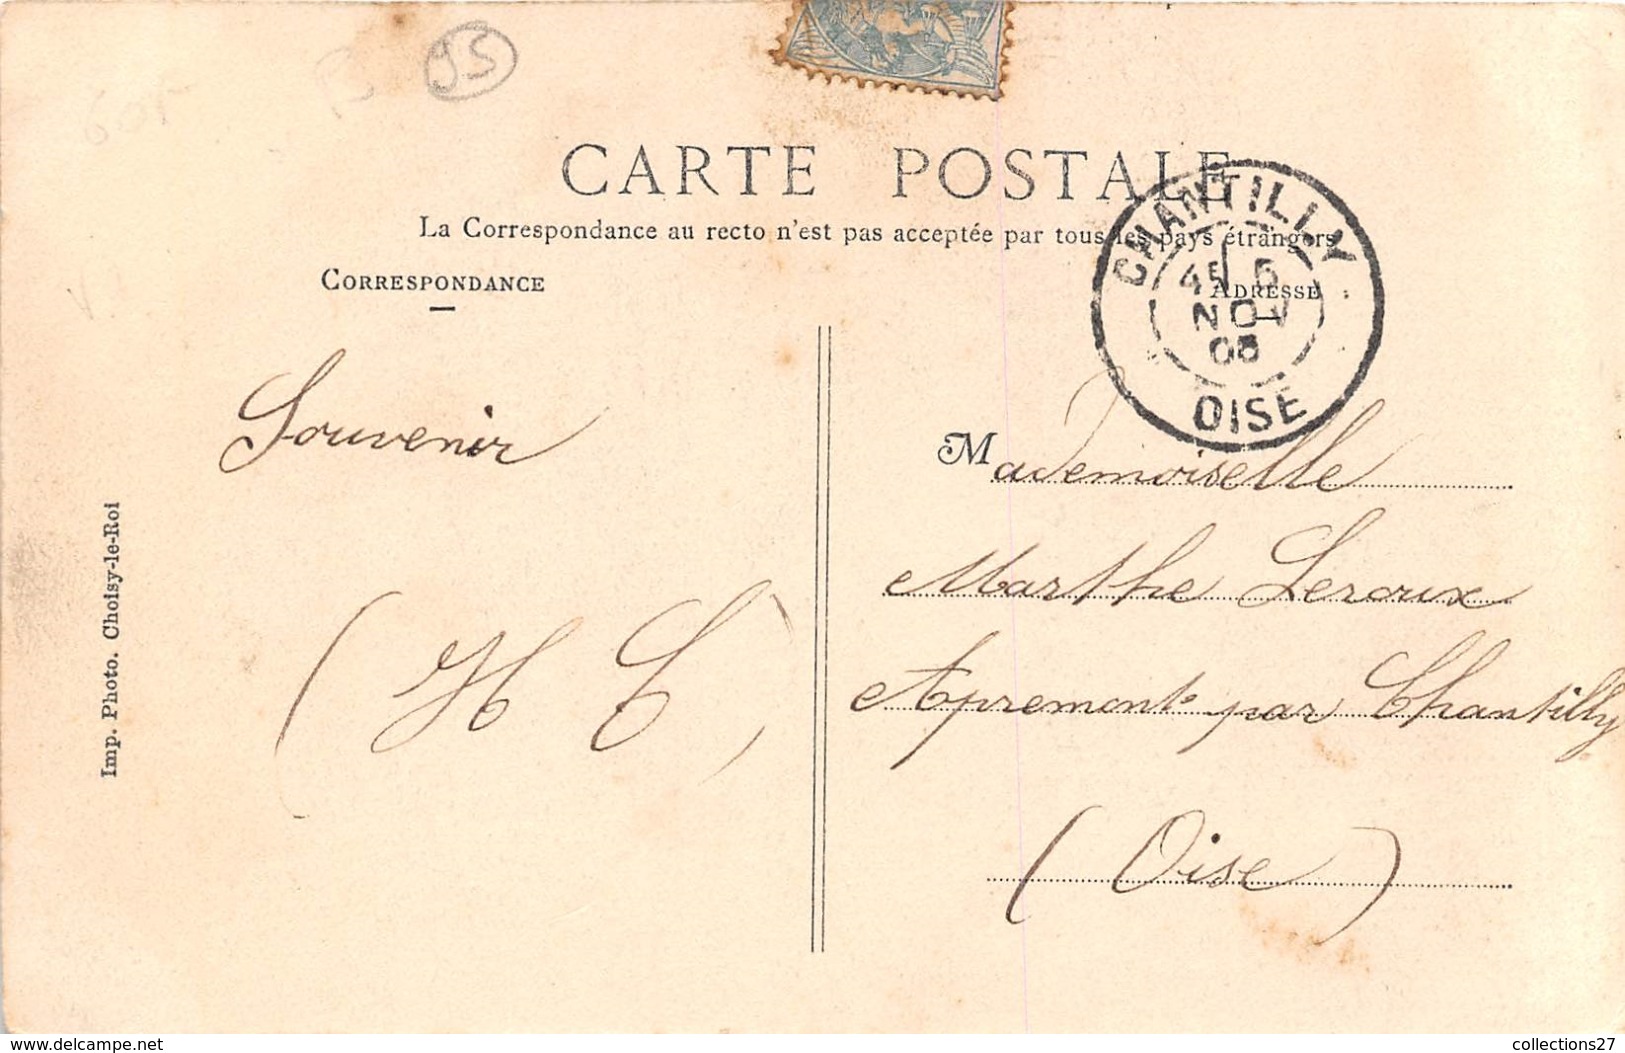 95
CARTE POSTALE
La Correspondance au recto n'est pas acceptée par tous les pays étrangers
CORRESPONDANCE
ADRESSE
CHANTILLY
4E 5
NOV
05
OISE
Souvenir
(H C)
Mademoiselle
Marthe Leroux
Apremont par Chantilly
(Oise)
Imp. Photo. Choisy-le-Roi
www.delcampe.net
collections27